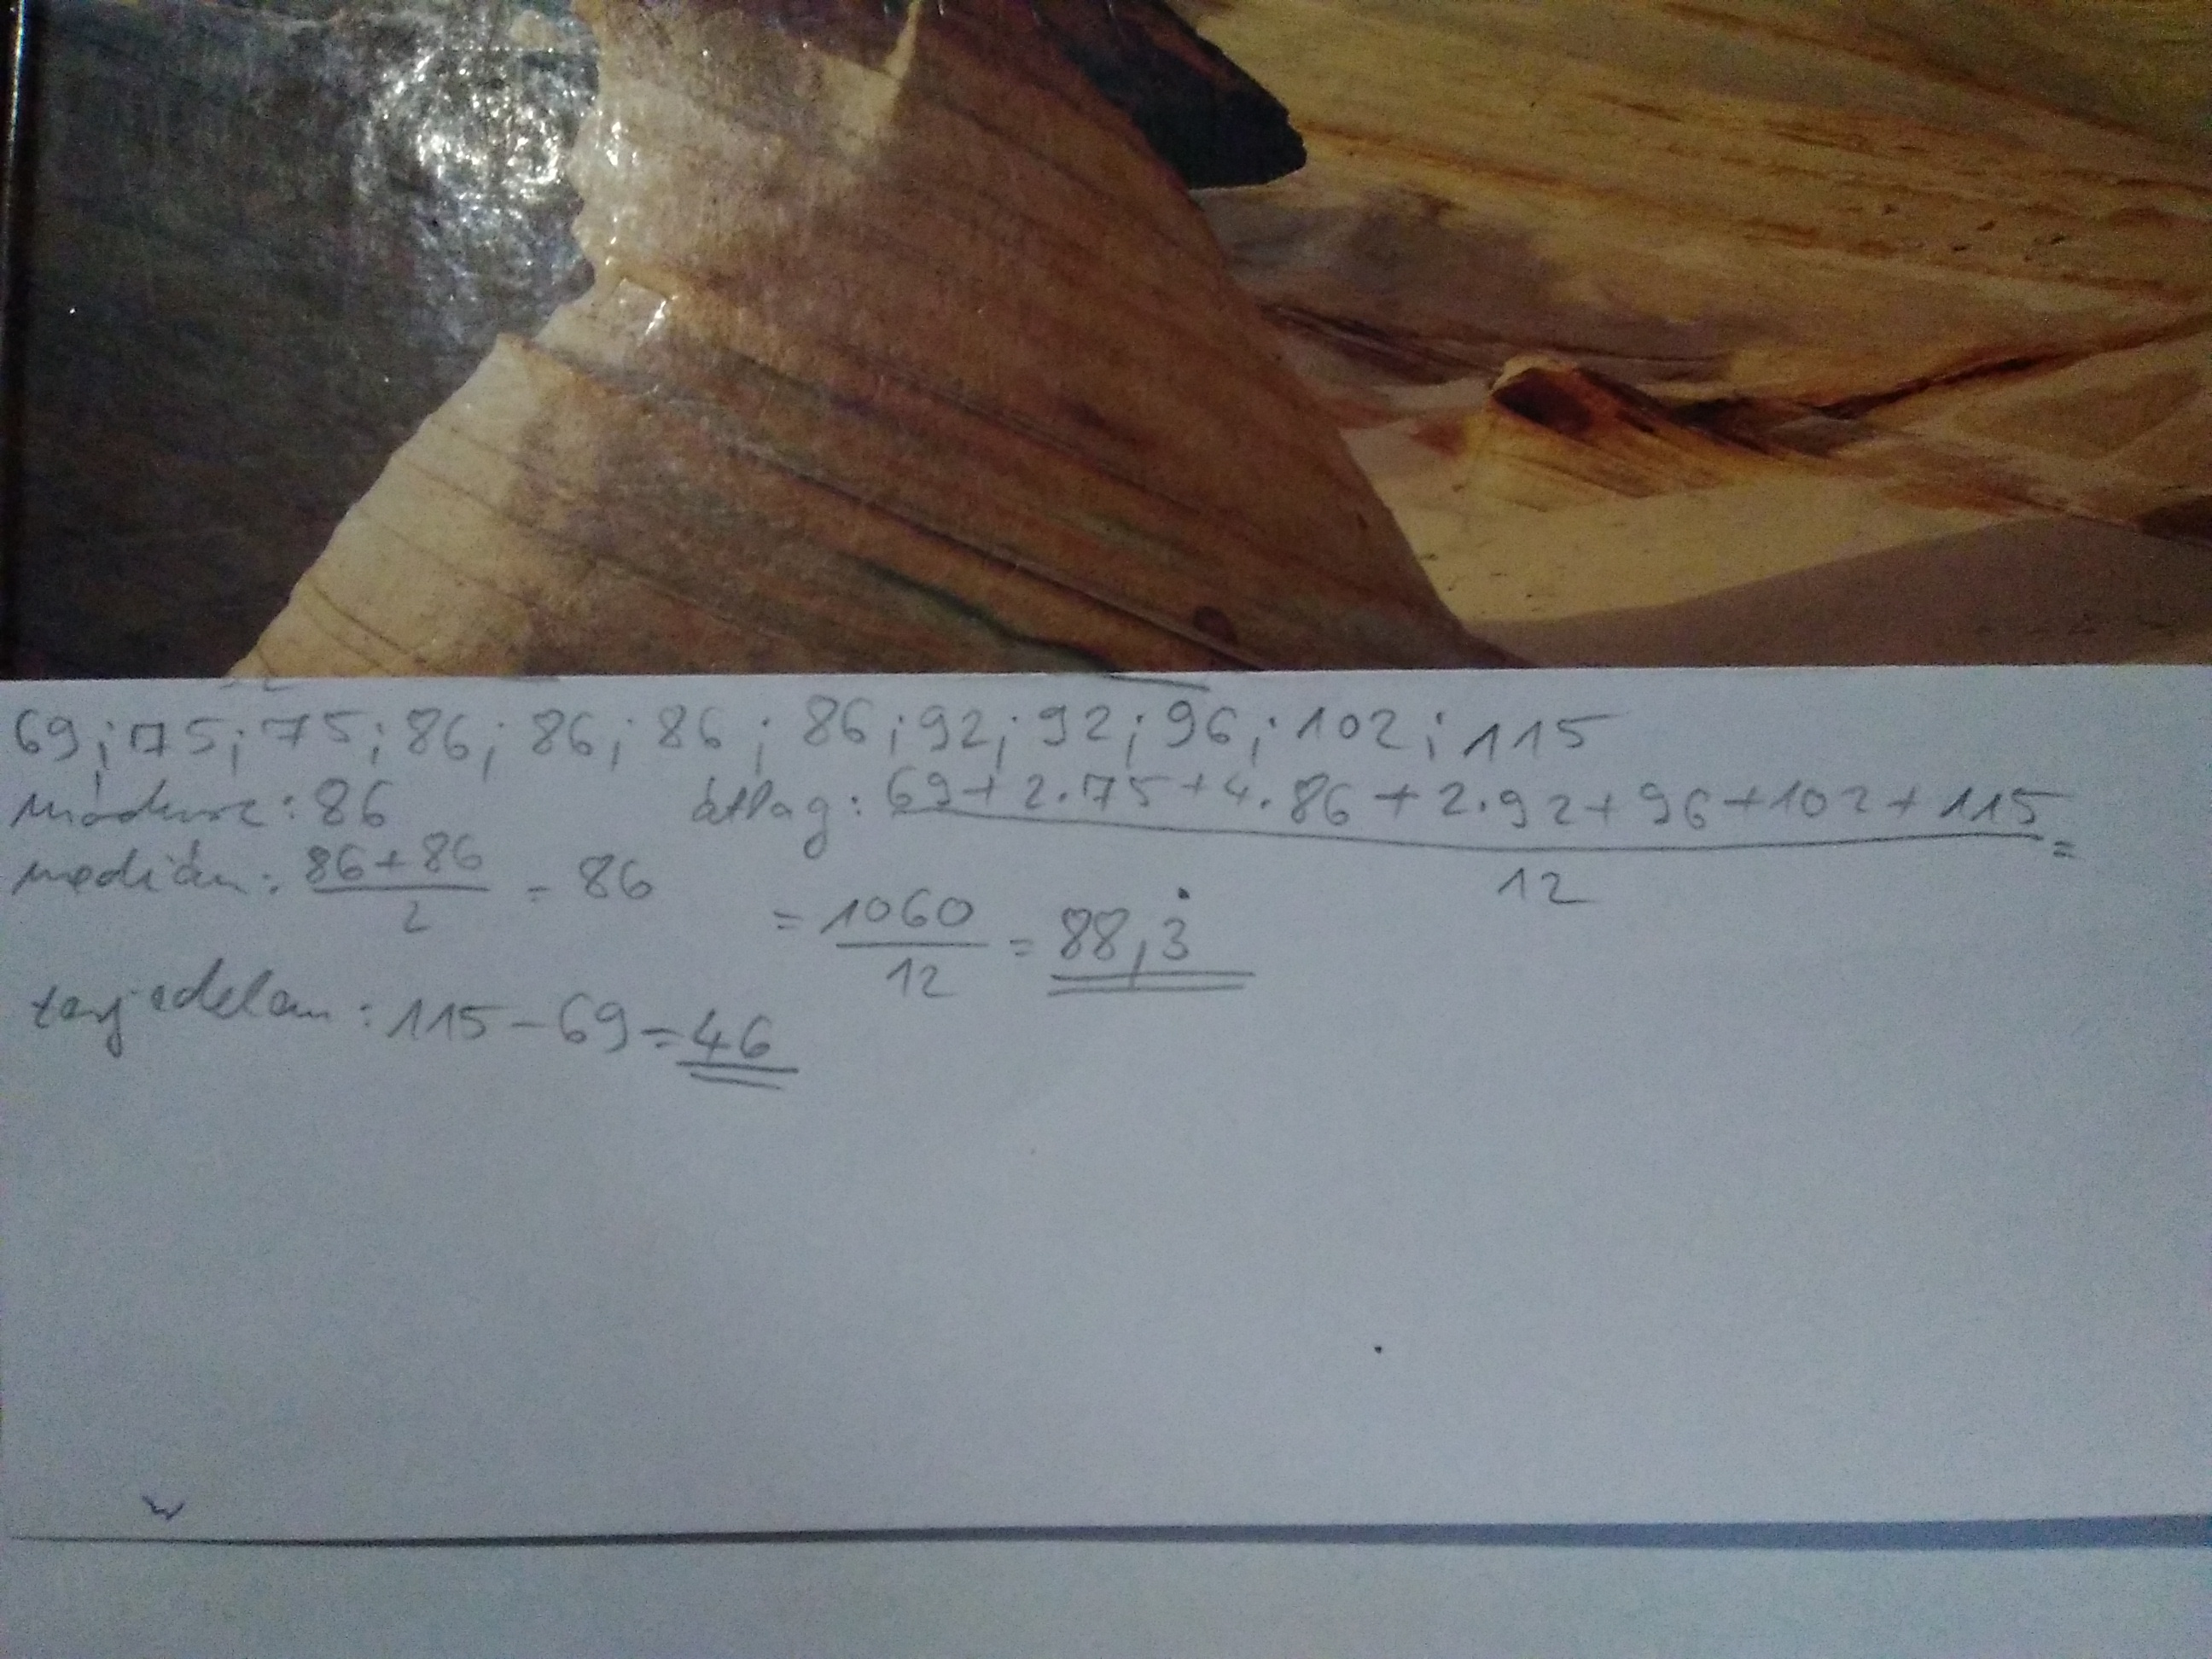 69; 75; 75; 86; 86; 86; 86; 92; 92; 96; 102; 115
módusz: 86
átlag: 69+2·75+4·86+2·92+96+102+115 / 12 =
medián: 86+86 / 2 = 86
= 1060 / 12 = 88,3̇
terjedelem: 115-69=46